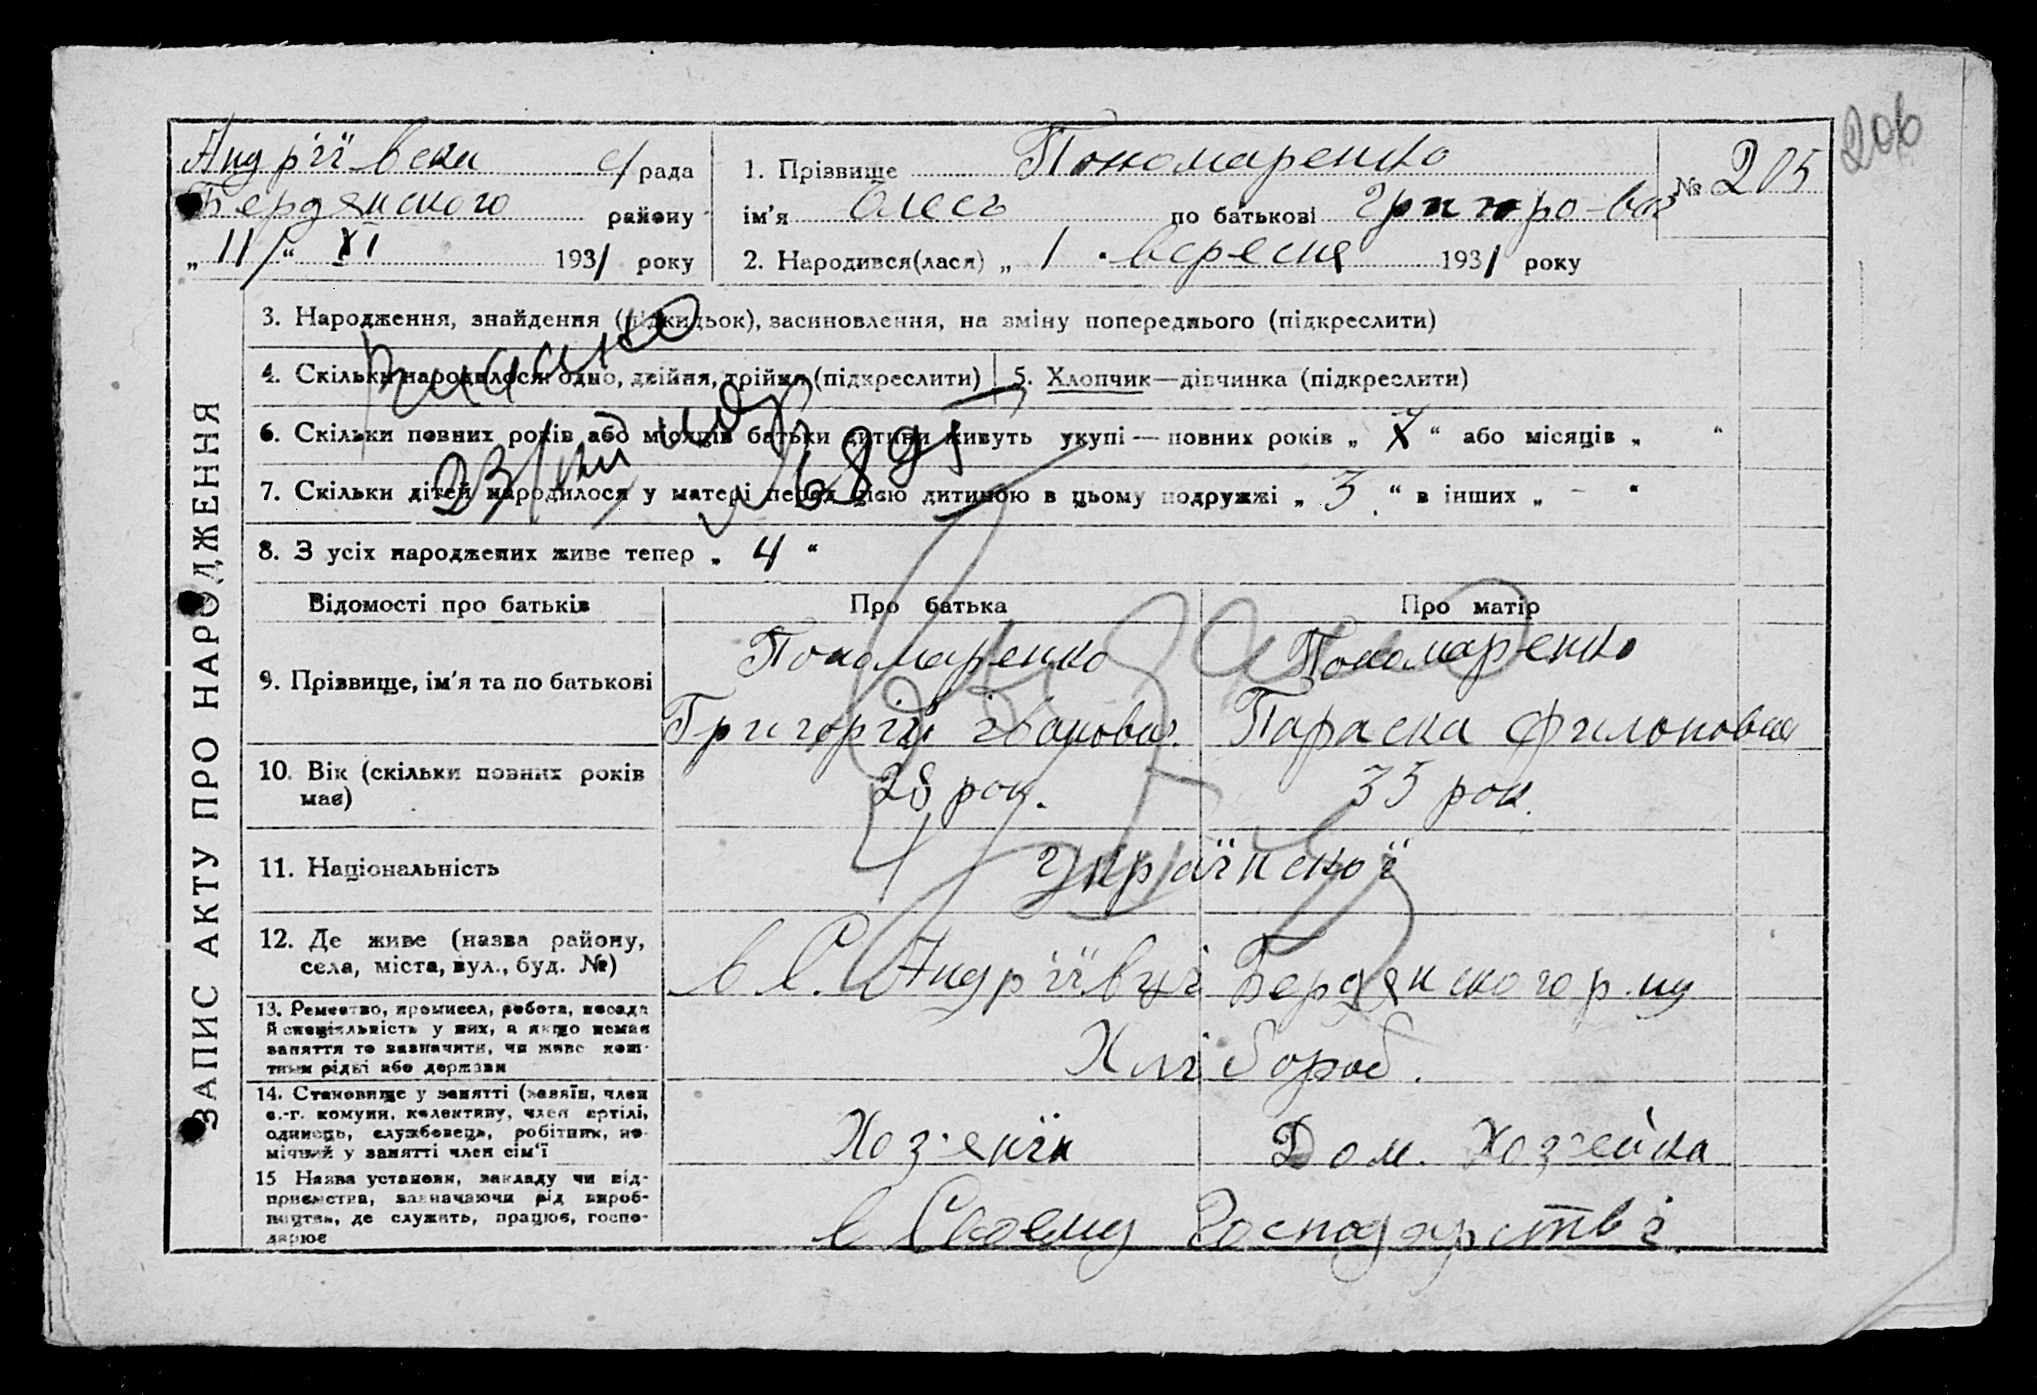 206
Андріївська с/рада
Бердянського району
„11/“ XI 1931 року
1. Прізвище Пономаренко
ім'я Олесь по батькові Григоро-вич
№ 205
2. Народився(лася) „1 вересня 1931 року
ЗАПИС АКТУ ПРО НАРОДЖЕННЯ
3. Народження, знайдення (підкидьок), засиновлення, на зміну попереднього (підкреслити)
4. Скільки народилося: одно, двійня, трійня (підкреслити) 5. Хлопчик—дівчинка (підкреслити)
6. Скільки повних років або місяців батьки дитини живуть укупі — повних років „ “ або місяців „ “
7. Скільки дітей народилося у матері перед цією дитиною в цьому подружжі „3“ в інших „ - “
8. З усіх народжених живе тепер „4“
Відомості про батьків Про батька Про матір
9. Прізвище, ім'я та по батькові
Пономаренко Григорій іванович
Пономаренко Параска Филоновна
10. Вік (скільки повних років має) 28 рок. 35 рок.
11. Національність Української
12. Де живе (назва району, села, міста, вул., буд. №)
в с. Андріївці Бердянського р-ну
13. Ремество, промисел, робота, посада
й спеціяльність у них, а якщо немає
заняття то зазначити, чи живе кош-
тами рідні або держави
Хлібороб.
14. Становище у занятті (хазяїн, член
с.-г. комуни, колективу, член артілі,
одинець, службовець, робітник, по-
мічний у занятті член сім'ї
Хоз'яїн Дом. Хоз'ейка
15 Назва установи, закладу чи під-
приємства, зазначаючи рід вироб-
ництва, де служить, працює, госпо-
дарює
в Своєму Господарстві